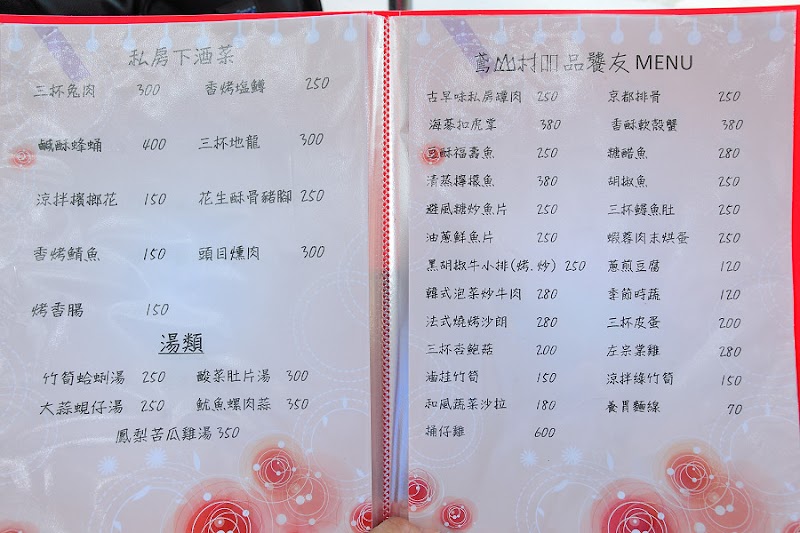 私房下酒菜
三杯兔肉 300 香烤塩鱒 250
鹹酥蜂蛹 400 三杯地龍 300
涼拌檳榔花 150 花生酥骨豬腳 250
香烤鯖魚 150 頭目燻肉 300
烤香腸 150
湯類
竹筍蛤蜊湯 250 酸菜肚片湯 300
大蒜蜆仔湯 250 魷魚螺肉蒜 350
鳳梨苦瓜雞湯 350
鳶山村 品饕友 MENU
古早味私房罈肉 250 京都排骨 250
海蔘扣虎掌 380 香酥軟殼蟹 380
豆酥福壽魚 250 糖醋魚 280
清蒸檸檬魚 380 胡椒魚 250
避風糖炒魚片 250 三杯鱘魚肚 250
油蔥鮮魚片 250 蝦蓉肉末烘蛋 250
黑胡椒牛小排(烤.炒) 250 蔥煎豆腐 120
韓式泡菜炒牛肉 280 季節時蔬 120
法式燒烤沙朗 280 三杯皮蛋 200
三杯杏鮑菇 200 左宗棠雞 280
油桂竹筍 150 涼拌綠竹筍 150
和風蔬菜沙拉 180 養胃麵線 70
桶仔雞 600